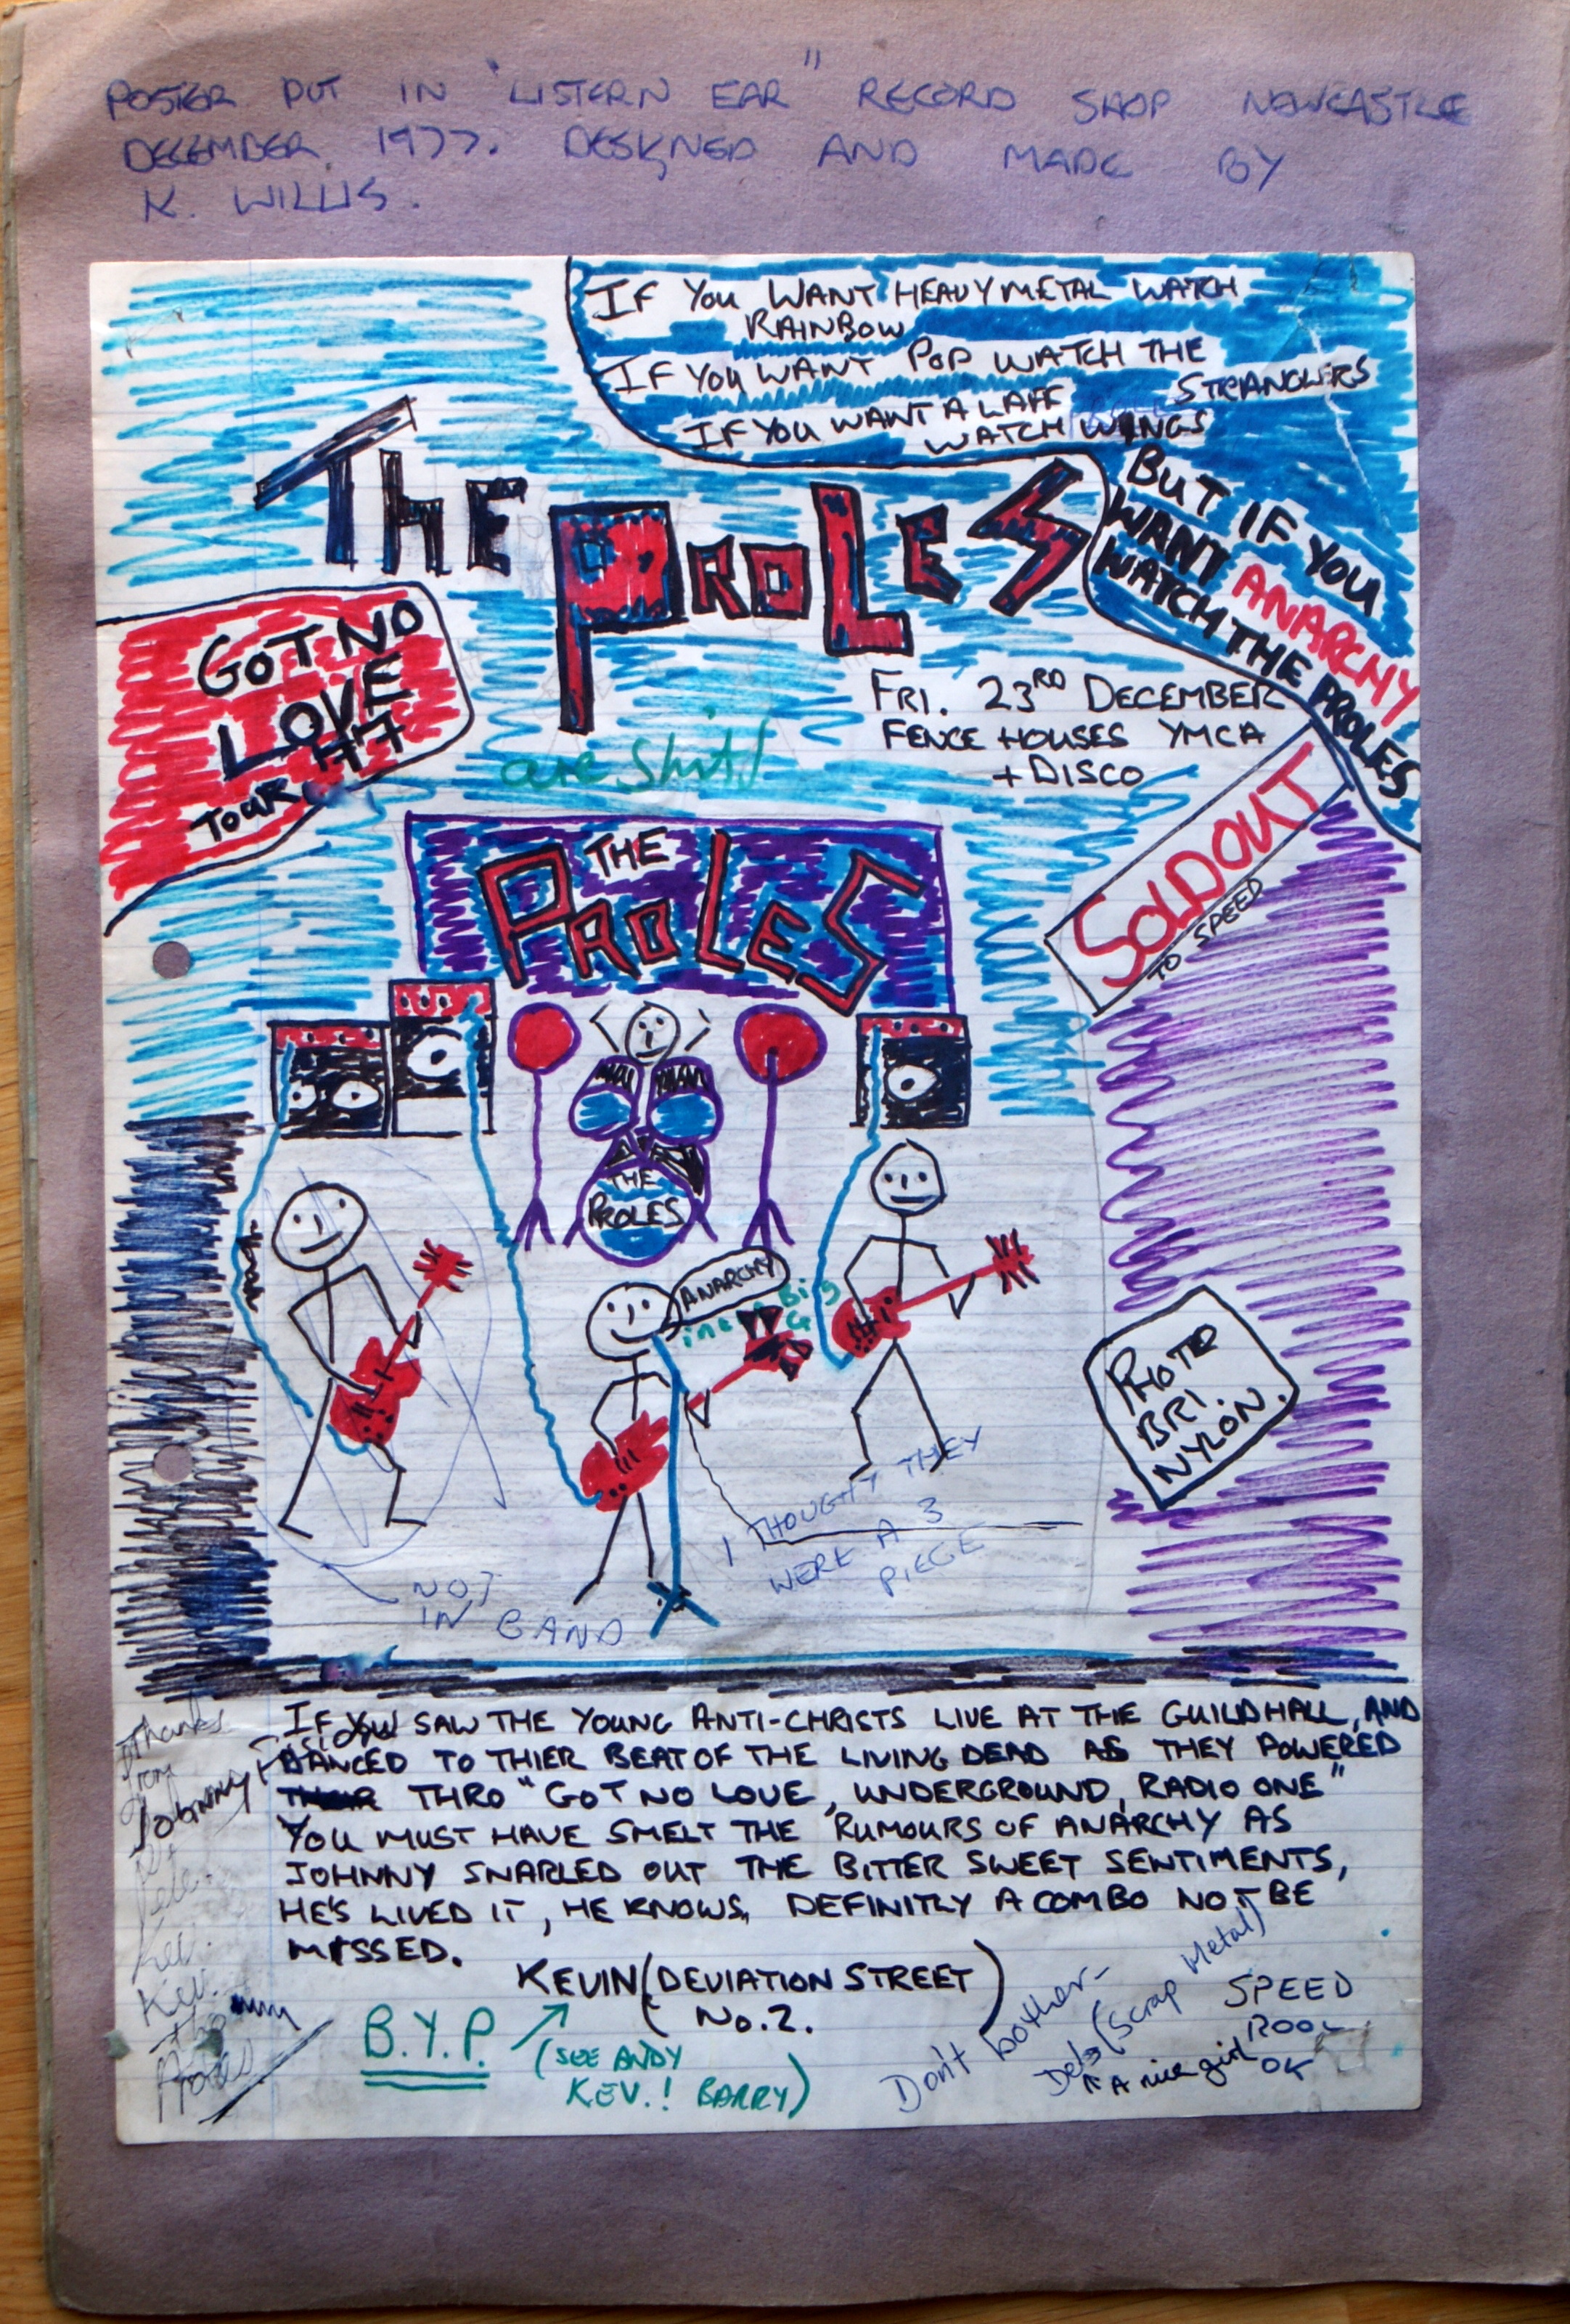 POSTER PUT IN "LISTERN EAR" RECORD SHOP NEWCASTLE
DECEMBER 1977. DESIGNED AND MADE BY
K. WILLIS.
IF YOU WANT HEAVY METAL WATCH
RAINBOW
IF YOU WANT POP WATCH THE
STRANGLERS
IF YOU WANT A LAFF
WATCH WINGS
BUT IF YOU
WANT ANARCHY
WATCH THE PROLES
THE PROLES
are shit!
GOT NO
LOVE
TOUR 77
FRI. 23RD DECEMBER
FENCE HOUSES YMCA
+ DISCO
SOLD OUT
TO SPEED
THE
PROLES
THE
PROLES
ANARCHY
in a Big
G
PHOTR
BRI.
NYLON.
I THOUGHT THEY
WERE A 3
PIECE
NOT
IN BAND
IF YOU SAW THE YOUNG ANTI-CHRISTS LIVE AT THE GUILDHALL, AND
DANCED TO THIER BEAT OF THE LIVING DEAD AS THEY POWERED
THRO "GOT NO LOVE, UNDERGROUND, RADIO ONE"
YOU MUST HAVE SMELT THE RUMOURS OF ANARCHY AS
JOHNNY SNARLED OUT THE BITTER SWEET SENTIMENTS,
HE'S LIVED IT, HE KNOWS, DEFINITLY A COMBO NOT BE
MISSED.
KEVIN (DEVIATION STREET
No. 2. )
B.Y.P.
(SEE ANDY
KEV.! BARRY)
Don't bother-
Deb (Scrap Metal)
A nice girl
SPEED
ROOL
OK
Thanks
from
Johnny
Kev.
Kev.